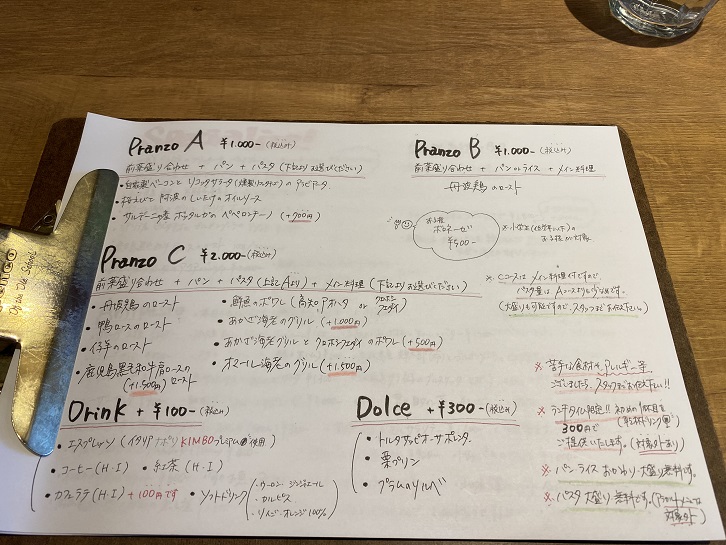 Pranzo A ¥1.000-(税込み)
前菜盛り合わせ + パン + パスタ (下記よりお選びください)
・自家製ベーコンと リコッタサラータ のアラビアータ
・桜えびと 阿波のしいたけのオイルソース
・サルデーニャ産 ボッタルガの ペペロンチーノ (+900円)
Pranzo B ¥1.000-(税込み)
前菜盛り合わせ + パンorライス + メイン料理
丹波鶏のロースト
お子様
ボロネーゼ
¥500-
※小学生(低学年以下)の
お子様が対象
Pranzo C ¥2.000-(税込み)
前菜盛り合わせ + パン + パスタ (上記Aより) + メイン料理 (下記よりお選びください)
・丹波鶏のロースト
・鴨ロースのロースト
・仔羊のロースト
・鹿児島黒毛和牛肩ロースの
(+1.500円) ロースト
・鮮魚のポワレ (高知 アオハタ or クロホシフエダイ)
・あかざ海老のグリル (+1.000円)
・あかざ海老グリルと クロホシフエダイのポワレ (+500円)
・オマール海老のグリル (+1.500円)
※Cコースは メイン料理付ですので、
パスタ量は Aコースより少なめです。
(大盛りも可能ですので、スタッフまでお伝え下さい。)
Drink + ¥100-(税込み)
・エスプレッソ (イタリア ナポリ KIMBO 使用)
・コーヒー (H・I) ・紅茶 (H・I)
・カフェラテ (H・I) +100円です ・ソフトドリンク
・ウーロン・ジンジャエール
・カルピス
・りんご・オレンジ100%
Dolce + ¥300-(税込み)
・トルタ サッビオーサ
・栗プリン
・プラムのソルベ
※苦手な食材や、アレルギー等
ございましたら、スタッフまでお伝え下さい!!
※ランチタイム限定!! 初めの1杯目を
300円で (乾杯ドリンク)
ご提供いたします。(対象外あり)
※パン ライス おかわり・大盛り無料です。
※パスタ 大盛り 無料です。
対象外